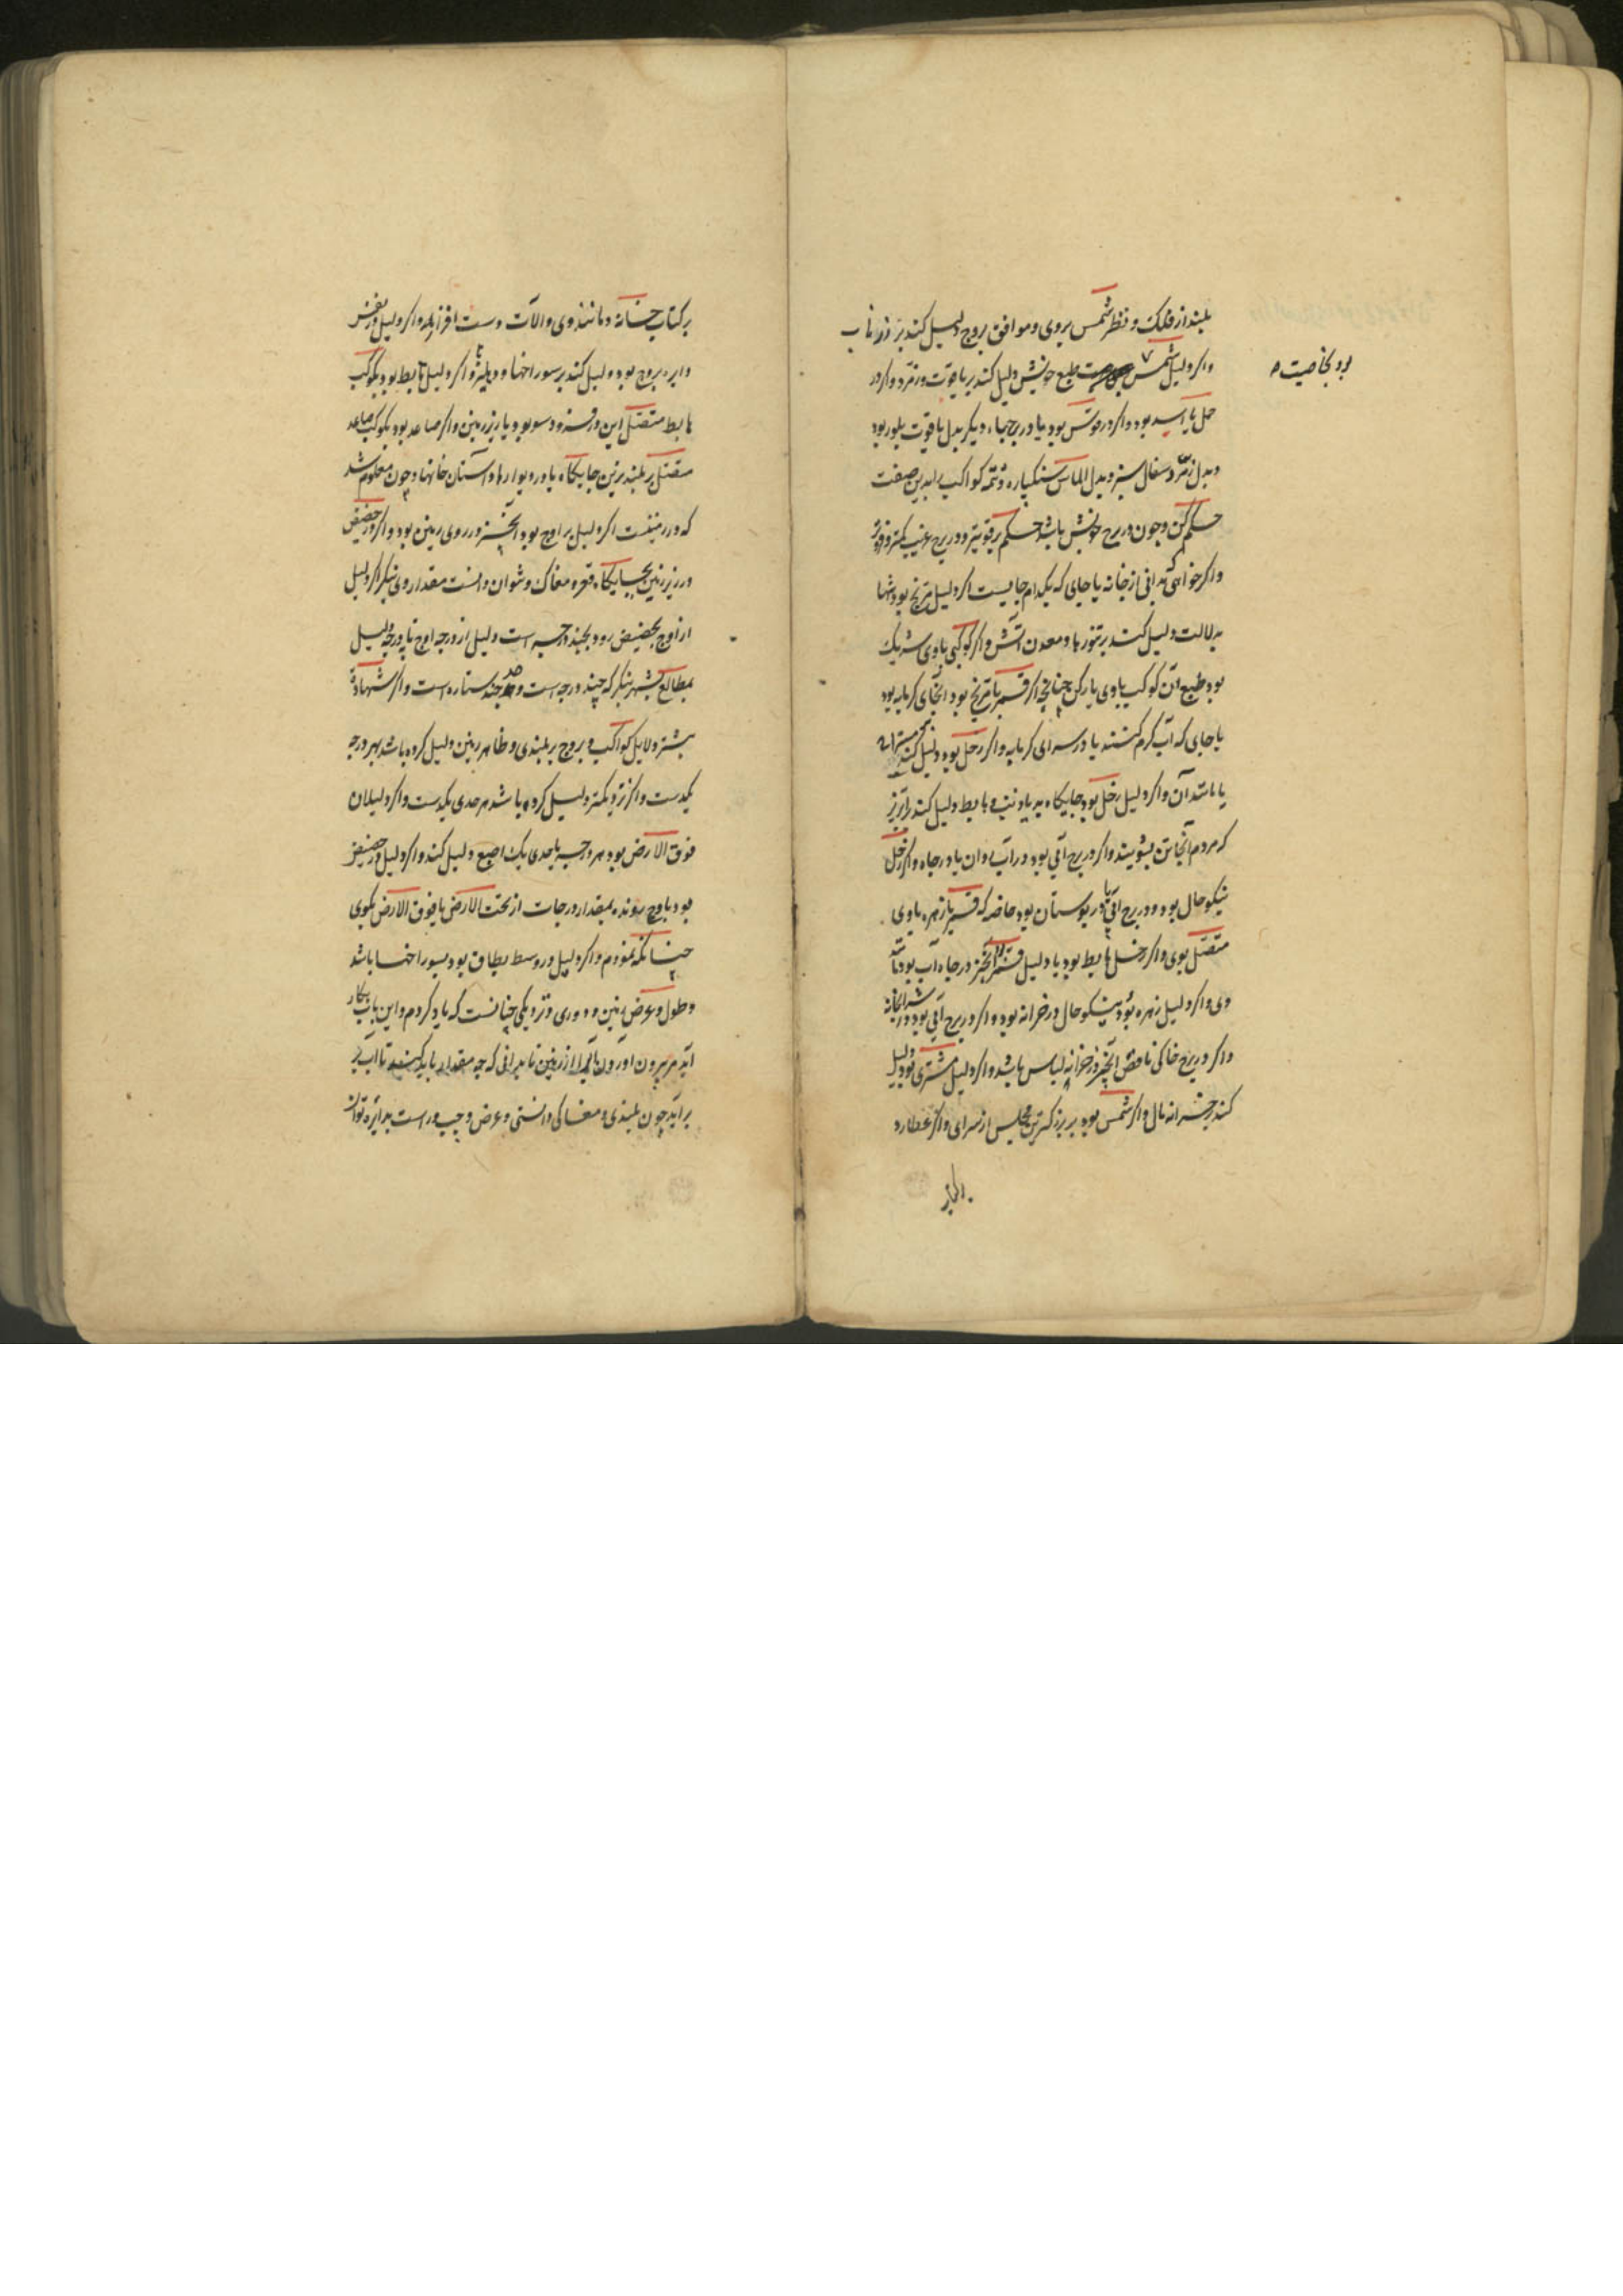 بلند از فلک و نظر شمس بروی و موافق بروج دلیل کند بر زر ناب
واکر دلیل شمس طبع خویش دلیل کند بر یاقوت و زمرد واکر در
بود بخاصیت
حمل یا اسد بود واکر در قوس بود یا در برجهاء دیکر بدل یاقوت بلور بود
وبدل زمرد سفال سبز وبدل الماس سنکپاره وتمه کواکب را بدین صفت
حکم کن وچون در برج خویش باشد حکم بر قویتر ودر برج غریب کمتر
واکر خواهی بدانی از خانه یا جای که بکدام جایست اکر دلیل مریخ بود تنها
بدلالت دلیل کند بر تنورها ومعدن آتش واکر کوکبی باوی شریک
بود طبع آن کوکب باوی یار کن چنانچه اکر قمر با مریخ بود آنجای کرمابه بود
یا جای که آب کرم کنند یا در سرای کرمابه واکر زحل بود دلیل کند
یا مانند آن واکر دلیل زحل بود جایکاه بد یا ذنب وهابط دلیل کند
که مردم آنجا تن بشویند واکر در برج آبی بود در آب روان یا در چاه واکر زحل
نیکو حال بود ودر برج آبی یا در بوستان بود خاصه که قمر یا زهره باوی
متصل بوی واکر زحل هابط بود یا دلیل قمر آنچیز در چاه آب بود مانند
وی واکر دلیل زهره بود نیکو حال در خزانه بود واکر در برج آبی بود در شرابخانه
واکر در برج خاکی ناقص آنچیز در خزانه لباس باشد واکر دلیل مشتری بود دلیل
کند بر خزانه مال واکر شمس بود بر بزرکترین مجلس از سرای واکر عطارد
بر کتاب خانه ومانند وی وآلات دست افزار واکر دلیل در نفس
دایره بروج بود دلیل کند بر سوراخها ودهلیز واکر دلیل هابط بود بکوکب
هابط متصل این در فرود سو بود یا زیر زمین واکر صاعد بود بکوکب صاعد
متصل بر بلندترین جایکاه یا در دیوارها وآستان خانها وچون معلوم شد
که در زمینست اکر دلیل بر اوج بود آنچیز در روی زمین بود واکر در حضیض
در زیر زمین بجایکاه قعره مغاک وتوان دانست مقدار وی بنکر اکر دلیل
از اوج بحضیض رود بچند درجه است دلیل از درجه اوج تا درجه دلیل
بمطالع شهر بنکر که چند درجه است وحد چند ستاره است واکر شهادة
بیشتر دلایل کواکب وبروج بر بلندی وظاهر زمین دلیل کرده باشد بهر درجه
یکدست واکر نزدیکتر دلیل کرده باشد هر حدی یکدست واکر دلیلان
فوق الارض بود هر درجه یا حدی یک اصبع دلیل کند واکر دلیل در حضیض
بود باوج رونده بمقدار درجات از تحت الارض یا فوق الارض بکوی
چنانکه نمودم واکر دلیل در وسط بطاق بود بسوراخها باشد
وطول وعرض زمین ودوری ونزدیکی چنانست که یاد کردم واین باب بکار
آید مر بیرون آوردن آبرا از زمین تا بدانی که چه مقدار باید کند تا آب
بر آید چون بلندی ومغاکی دانستی وعرض وچپ وراست بدایره توان